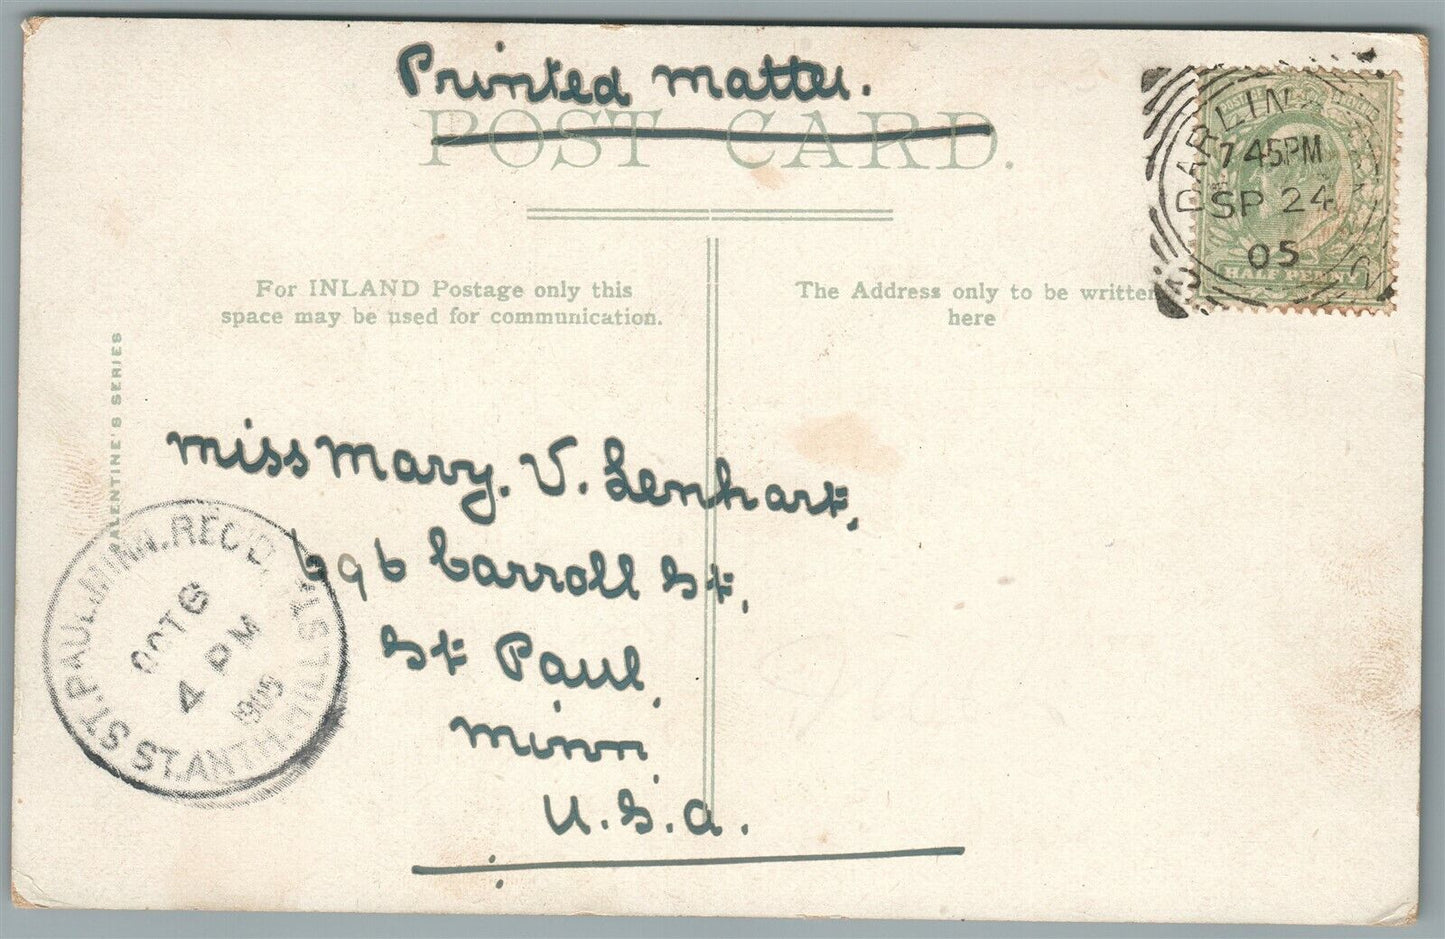 Printed matter.
POST CARD.
DARLIN
7 45PM
SP 24
05
HALF PENNY
For INLAND Postage only this
space may be used for communication.
The Address only to be written
here
VALENTINE'S SERIES
miss Mary. V. Lenhart,
696 Carroll St,
St Paul,
Minn,
U.S.A.
ST. PAUL, MINN. REC'D.
OCT 6
4 PM
1905
ST. ANTH. HILL STA.